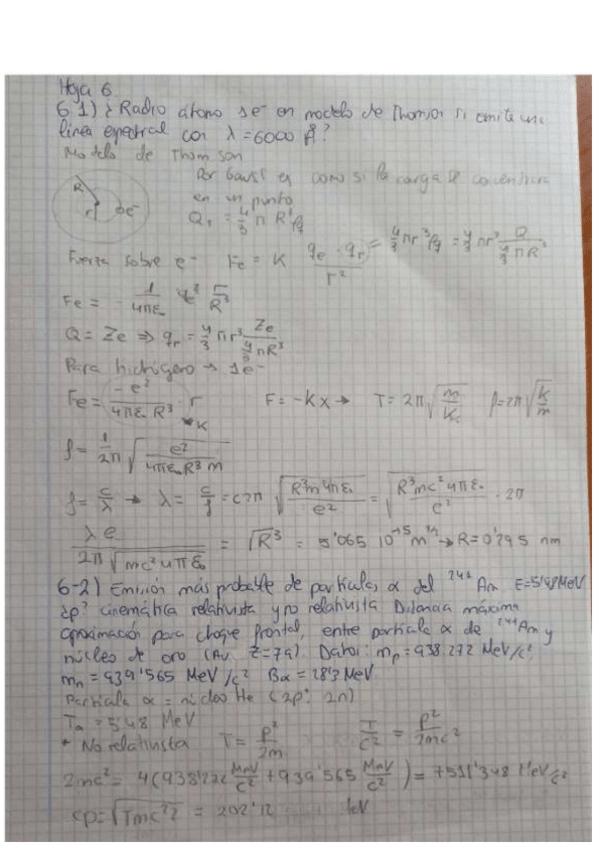 Hoja 6
6.1) ¿Radio átomo 1e⁻ en modelo de Thomson si emite una
línea espectral con λ = 6000 Å?
Modelo de Thomson
Por Gauss es como si la carga se concentrara
en un punto
R r e⁻
Q_T = 4/3 π R³ρ
Fuerza sobre e⁻ Fe = K (q_e · q_r)/r² = 4/3 π r³ρ = 4/3 π r³ Q/(4/3 π R³)
Fe = - 1/(4πε₀) e² r/R³
Q = Ze ⇒ q_r = 4/3 π r³ Ze/(4/3 π R³)
Para hidrógeno → 1e⁻
Fe = -e²/(4πε₀ R³) · r F = -kx → T = 2π √(m/K) f = 2π √(K/m)
K
f = 1/2π √(e²/(4πε₀R³m))
f = c/λ → λ = c/f = c2π √(R³m4πε₀/e²) = √(R³mc²4πε₀/e²) · 2π
λe/(2π√(mc²4πε₀)) = √R³ = 5'065 10⁻¹⁵ → R = 0'295 nm
6-2) Emisión más probable de partículas α del ²⁴¹Am E=5'48MeV
¿p? cinemática relativista y no relativista Distancia máxima
aproximación para choque frontal, entre partícula α de ²⁴¹Am y
núcleo de oro (Au Z=79). Datos: m_p = 938'272 MeV/c²
m_n = 939'565 MeV/c² Bα = 28'3 MeV
Partícula α = núcleo He (2p⁺ 2n)
T_α = 5'48 MeV
* No relativista T = p²/2m T/c² = p²/2mc²
2mc² = 4(938'272 MeV/c² + 939'565 MeV/c²) = 7511'348 MeV/c²
cp = √(Tmc²2) = 202'12 MeV